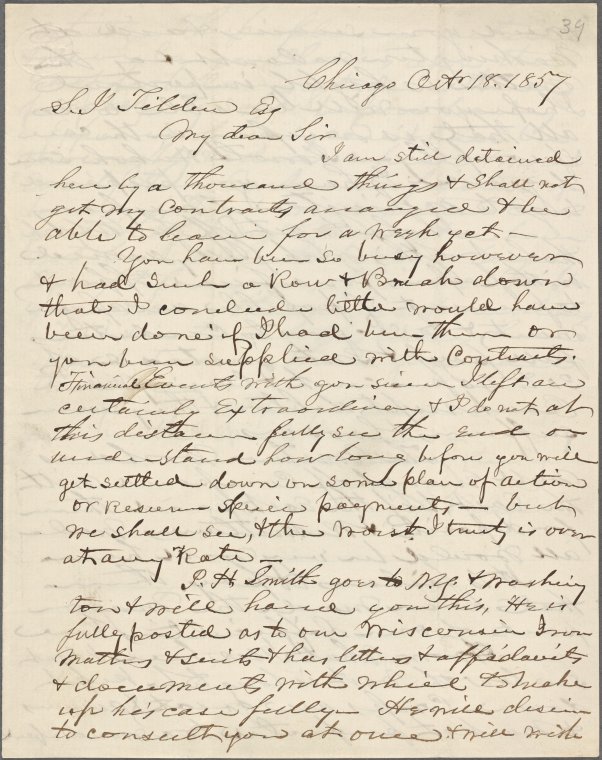 39
Chicago Octr 18. 1857
S. J Tilden Esq
My dear Sir
I am still detained
here by a thousand things & shall not
get my contracts arranged & be
able to leave for a week yet —
You have been so busy however
& had such a Row & Break down
that I conclude little would have
been done if I had been there or
you been supplied with Contracts.
Financial Events with you since I left are
certainly Extraordinary & I do not at
this distance fully see the end or
understand how long before you will
get settled down on some plan of action
or resume specie payments — but
we shall see, & the worst I trust is over
at any Rate —
J. H Smith goes to NYC & Washing
ton & will hand you this, He is
fully posted as to our Wisconsin Iron
matters & suits & has letters & affidavits
& documents with which to make
up his case fully — He will desire
to consult you at once & will wish